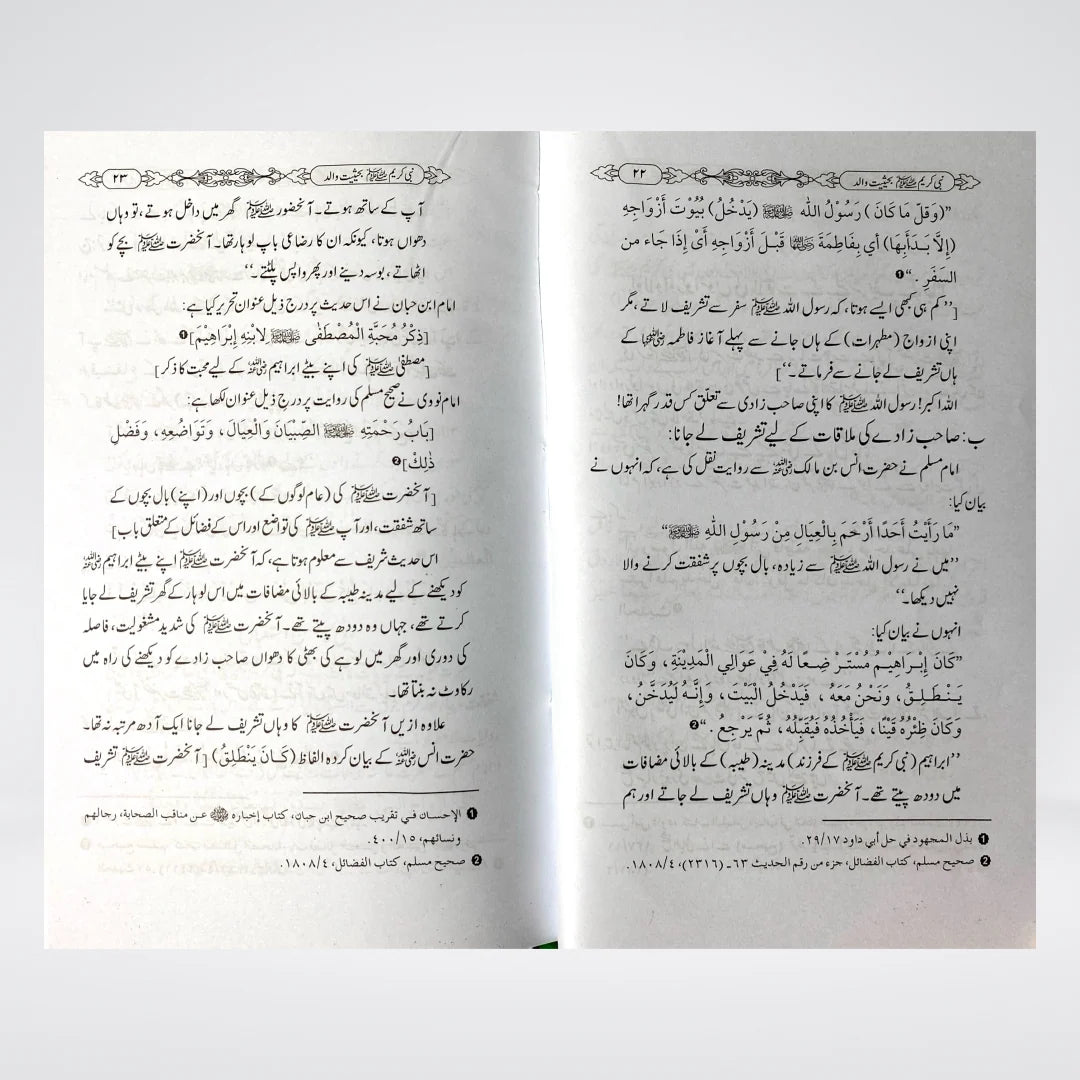 نبی کریم ﷺ بحیثیت والد
۲۲
”(وَقَلَّ مَا كَانَ) رَسُوْلُ اللهِ ﷺ (يَدْخُلُ) بُيُوْتَ أَزْوَاجِهِ
(إِلَّا بَدَأَبِهَا) أي بِفَاطِمَةَ ﷺ قَبْلَ أَزْوَاجِهِ أَيْ إِذَا جَاء من
السَفَرِ .“❶
[’’کم ہی کبھی ایسے ہوتا، کہ رسول اللہ ﷺ سفر سے تشریف لاتے، مگر
اپنی ازواج (مطہرات) کے ہاں جانے سے پہلے آغاز فاطمہ رضی اللہ عنہا کے
ہاں تشریف لے جانے سے فرماتے۔‘‘]
اللہ اکبر! رسول اللہ ﷺ کا اپنی صاحب زادی سے تعلّق کس قدر گہرا تھا!
ب: صاحب زادے کی ملاقات کے لیے تشریف لے جانا:
امام مسلم نے حضرت انس بن مالک رضی اللہ عنہ سے روایت نقل کی ہے، کہ انہوں نے
بیان کیا:
”مَا رَأَيْتُ أَحَدًا أَرْحَمَ بِالْعِيَالِ مِنْ رَسُوْلِ اللهِ ﷺ“
’’میں نے رسول اللہ ﷺ سے زیادہ، بال بچوں پر شفقت کرنے والا
نہیں دیکھا۔‘‘
انہوں نے بیان کیا:
”كَانَ إِبْرَاهِيْمُ مُسْتَرْضِعًا لَهُ فِيْ عَوَالِي الْمَدِيْنَةِ، وَكَانَ
يَنْطَلِقُ، وَنَحْنُ مَعَهُ ، فَيَدْخُلُ الْبَيْتَ، وَإِنَّهُ لَيُدَخَّنُ،
وَكَانَ ظِئْرُهُ قَيْنًا، فَيَأْخُذُهُ فَيُقَبِّلُهُ ، ثُمَّ يَرْجِعُ .“❷
’’ابراہیم (نبی کریم ﷺ کے فرزند) مدینہ (طیبہ) کے بالائی مضافات
میں دودھ پیتے تھے۔ آنحضرت ﷺ وہاں تشریف لے جاتے اور ہم
❶ بذل المجهود في حل أبي داود ۲۹/۱۷.
❷ صحيح مسلم، كتاب الفضائل، جزء من رقم الحديث ۶۳ـ (۲۳۱۶)، ۱۸۰۸/۴.
نبی کریم ﷺ بحیثیت والد
۲۳
آپ کے ساتھ ہوتے۔ آنحضور ﷺ گھر میں داخل ہوتے، تو وہاں
دھواں ہوتا، کیونکہ ان کا رضاعی باپ لوہار تھا۔ آنحضرت ﷺ بچے کو
اٹھاتے، بوسہ دیتے اور پھر واپس پلٹتے۔‘‘
امام ابن حبان نے اس حدیث پر درج ذیل عنوان تحریر کیا ہے:
[ذِكْرُ مُحَبَّةِ الْمُصْطَفٰى ﷺ لِابْنِهِ إِبْرَاهِيْمَ]❶
[مصطفیٰ ﷺ کی اپنے بیٹے ابراہیم رضی اللہ عنہ کے لیے محبت کا ذکر]
امام نووی نے صحیح مسلم کی روایت پر درجِ ذیل عنوان لکھا ہے:
[بَابُ رَحْمَتِهِ ﷺ الصِّبْيَانَ وَالْعِيَالَ، وَتَوَاضُعِهِ، وَفَضْلِ
ذٰلِكَ]❷
[آنحضرت ﷺ کی (عام لوگوں کے) بچوں اور (اپنے) بال بچوں کے
ساتھ شفقت، اور آپ ﷺ کی تواضع اور اس کے فضائل کے متعلق باب]
اس حدیث شریف سے معلوم ہوتا ہے، کہ آنحضرت ﷺ اپنے بیٹے ابراہیم رضی اللہ عنہ
کو دیکھنے کے لیے مدینہ طیبہ کے بالائی مضافات میں اس لوہار کے گھر تشریف لے جایا
کرتے تھے، جہاں وہ دودھ پیتے تھے۔ آنحضرت ﷺ کی شدید مشغولیت، فاصلہ
کی دوری اور گھر میں لوہے کی بھٹی کا دھواں صاحب زادے کو دیکھنے کی راہ میں
رکاوٹ نہ بنتا تھا۔
علاوہ ازیں آنحضرت ﷺ کا وہاں تشریف لے جانا ایک آدھ مرتبہ نہ تھا۔
حضرت انس رضی اللہ عنہ کے بیان کردہ الفاظ (كَانَ يَنْطَلِقُ) [آنحضرت ﷺ تشریف
❶ الإحسان في تقريب صحيح ابن حبان، كتاب إخباره ﷺ عن مناقب الصحابة، رجالهم
ونسائهم، ۴۰۰/۱۵.
❷ صحيح مسلم، كتاب الفضائل، ۱۸۰۸/۴.